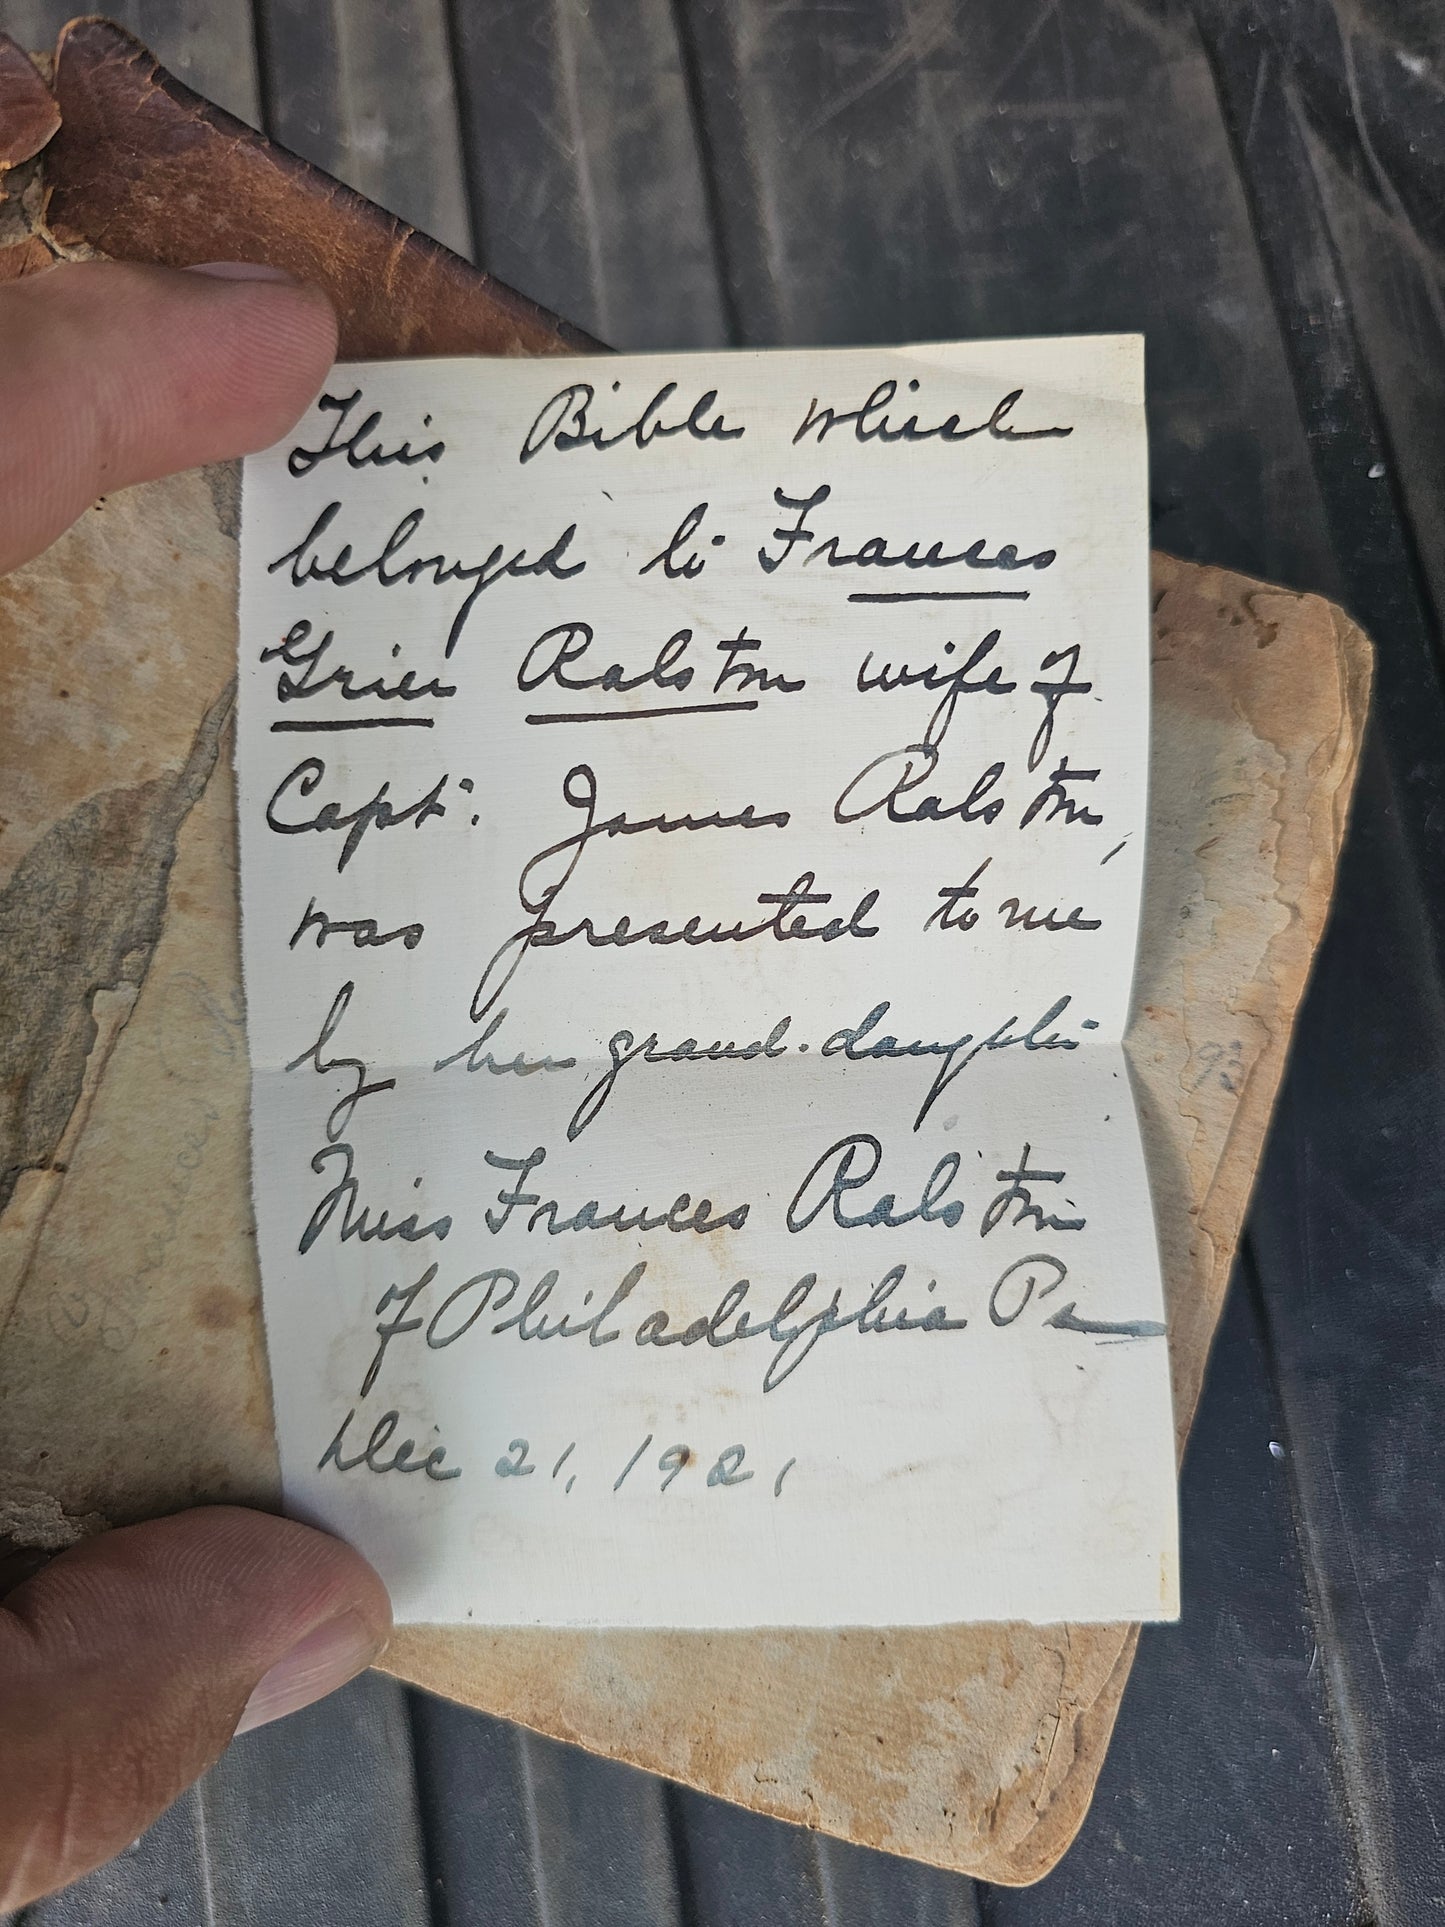 This Bible which
belonged to Frances
Grier Ralston wife of
Capt. James Ralston,
was presented to me
by her grand-daughter
Miss Frances Ralston
of Philadelphia Pa
Dec 21, 1921